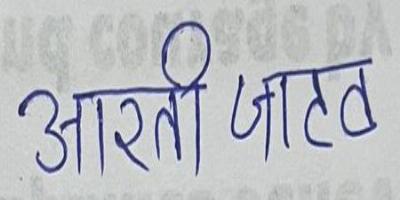 आरती जाटव